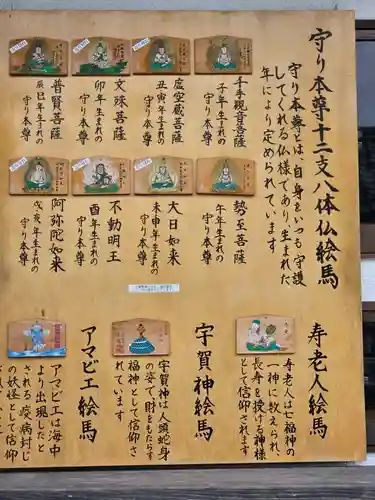 守り本尊十二支八体仏絵馬
守り本尊とは、自身をいつも守護
してくれる仏様であり、生まれた
年により定められています
千手観音菩薩
子年生まれの
守り本尊
虚空蔵菩薩
丑寅年生まれの
守り本尊
文殊菩薩
卯年生まれの
守り本尊
普賢菩薩
辰巳年生まれの
守り本尊
勢至菩薩
午年生まれの
守り本尊
大日如来
未申年生まれの
守り本尊
不動明王
酉年生まれの
守り本尊
阿弥陀如来
戌亥年生まれの
守り本尊
寿老人絵馬
寿老人は七福神の
一神に数えられ、
長寿を授ける神様
として信仰されます
宇賀神絵馬
宇賀神は人頭蛇身
の姿で、財をもたらす
福神として信仰さ
れています
アマビエ絵馬
アマビエは海中
より出現したと
される疫病封じ
の妖怪として信仰